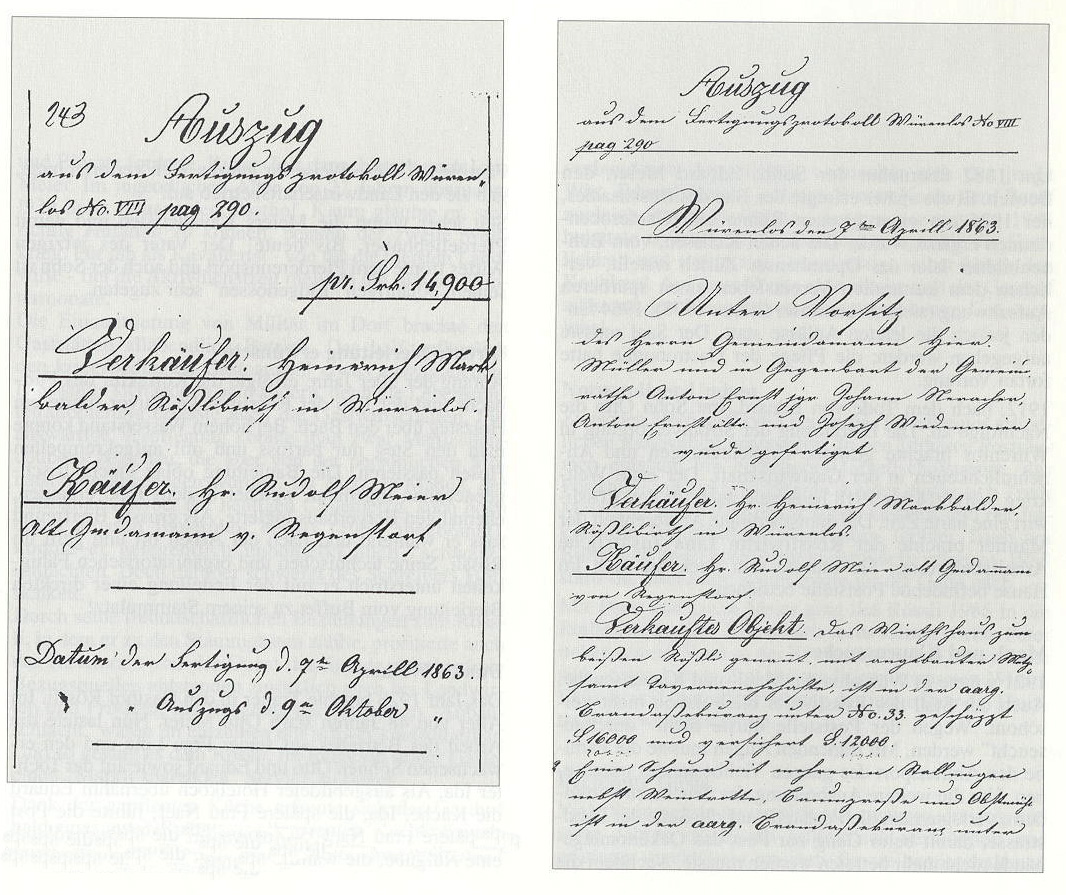 243
Auszug
aus dem Fertigungsprotokoll Würen„
los No. VIII pag 290.
pr. Frk. 14,900
Verkäufer: Heinerich Mark
balder, Rößliwirth in Würenlos.
Käufer. Hr. Rudolf Meier
Alt Gmdamann v. Regenstorf
Datum der Fertigung d. 7ten Aprill 1863.
„ „ Auszugs d. 9ten Oktober „
Auszug
aus dem Fertigungsprotokoll Würenlos No VIII
pag 290
Würenlos den 7ten Aprill 1863.
Unter Vorsitz
des Herrn Gemeindamann Hier.
Müller und in Gegenwart der Gemein,
räthe Anton Ernst jgr Johann Neracher,
Anton Ernst ältr. und Joseph Wiedenmeier
wurde gefertiget
Verkäufer. Hr. Heinerich Markbalder,
Rößliwirth in Würenlos.
Käufer. Hr. Rudolf Meier alt Gmdamann
von Regenstorf.
Verkauftes Objekt. Das Wirthshaus zum
weißen Rößli genannt, mit angebauter Metzg
samt Tavernenehehafte, ist in der aarg.
Brandaßekuranz unter No. 33. geschäzt
16000 und versichert 12000
Eine Scheuer mit mehreren Stallungen
nebst Weintrotte, Baumpreße und Obstmühle
ist in der aarg. Brandaßekuranz unter